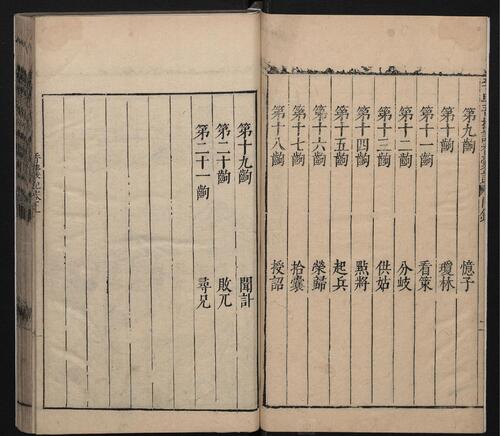 第九齣 憶子
第十齣 瓊林
第十一齣 看策
第十二齣 分岐
第十三齣 供姑
第十四齣 點將
第十五齣 起兵
第十六齣 榮歸
第十七齣 拾囊
第十八齣 授詔
第十九齣 聞計
第二十齣 敗兀
第二十一齣 尋兄